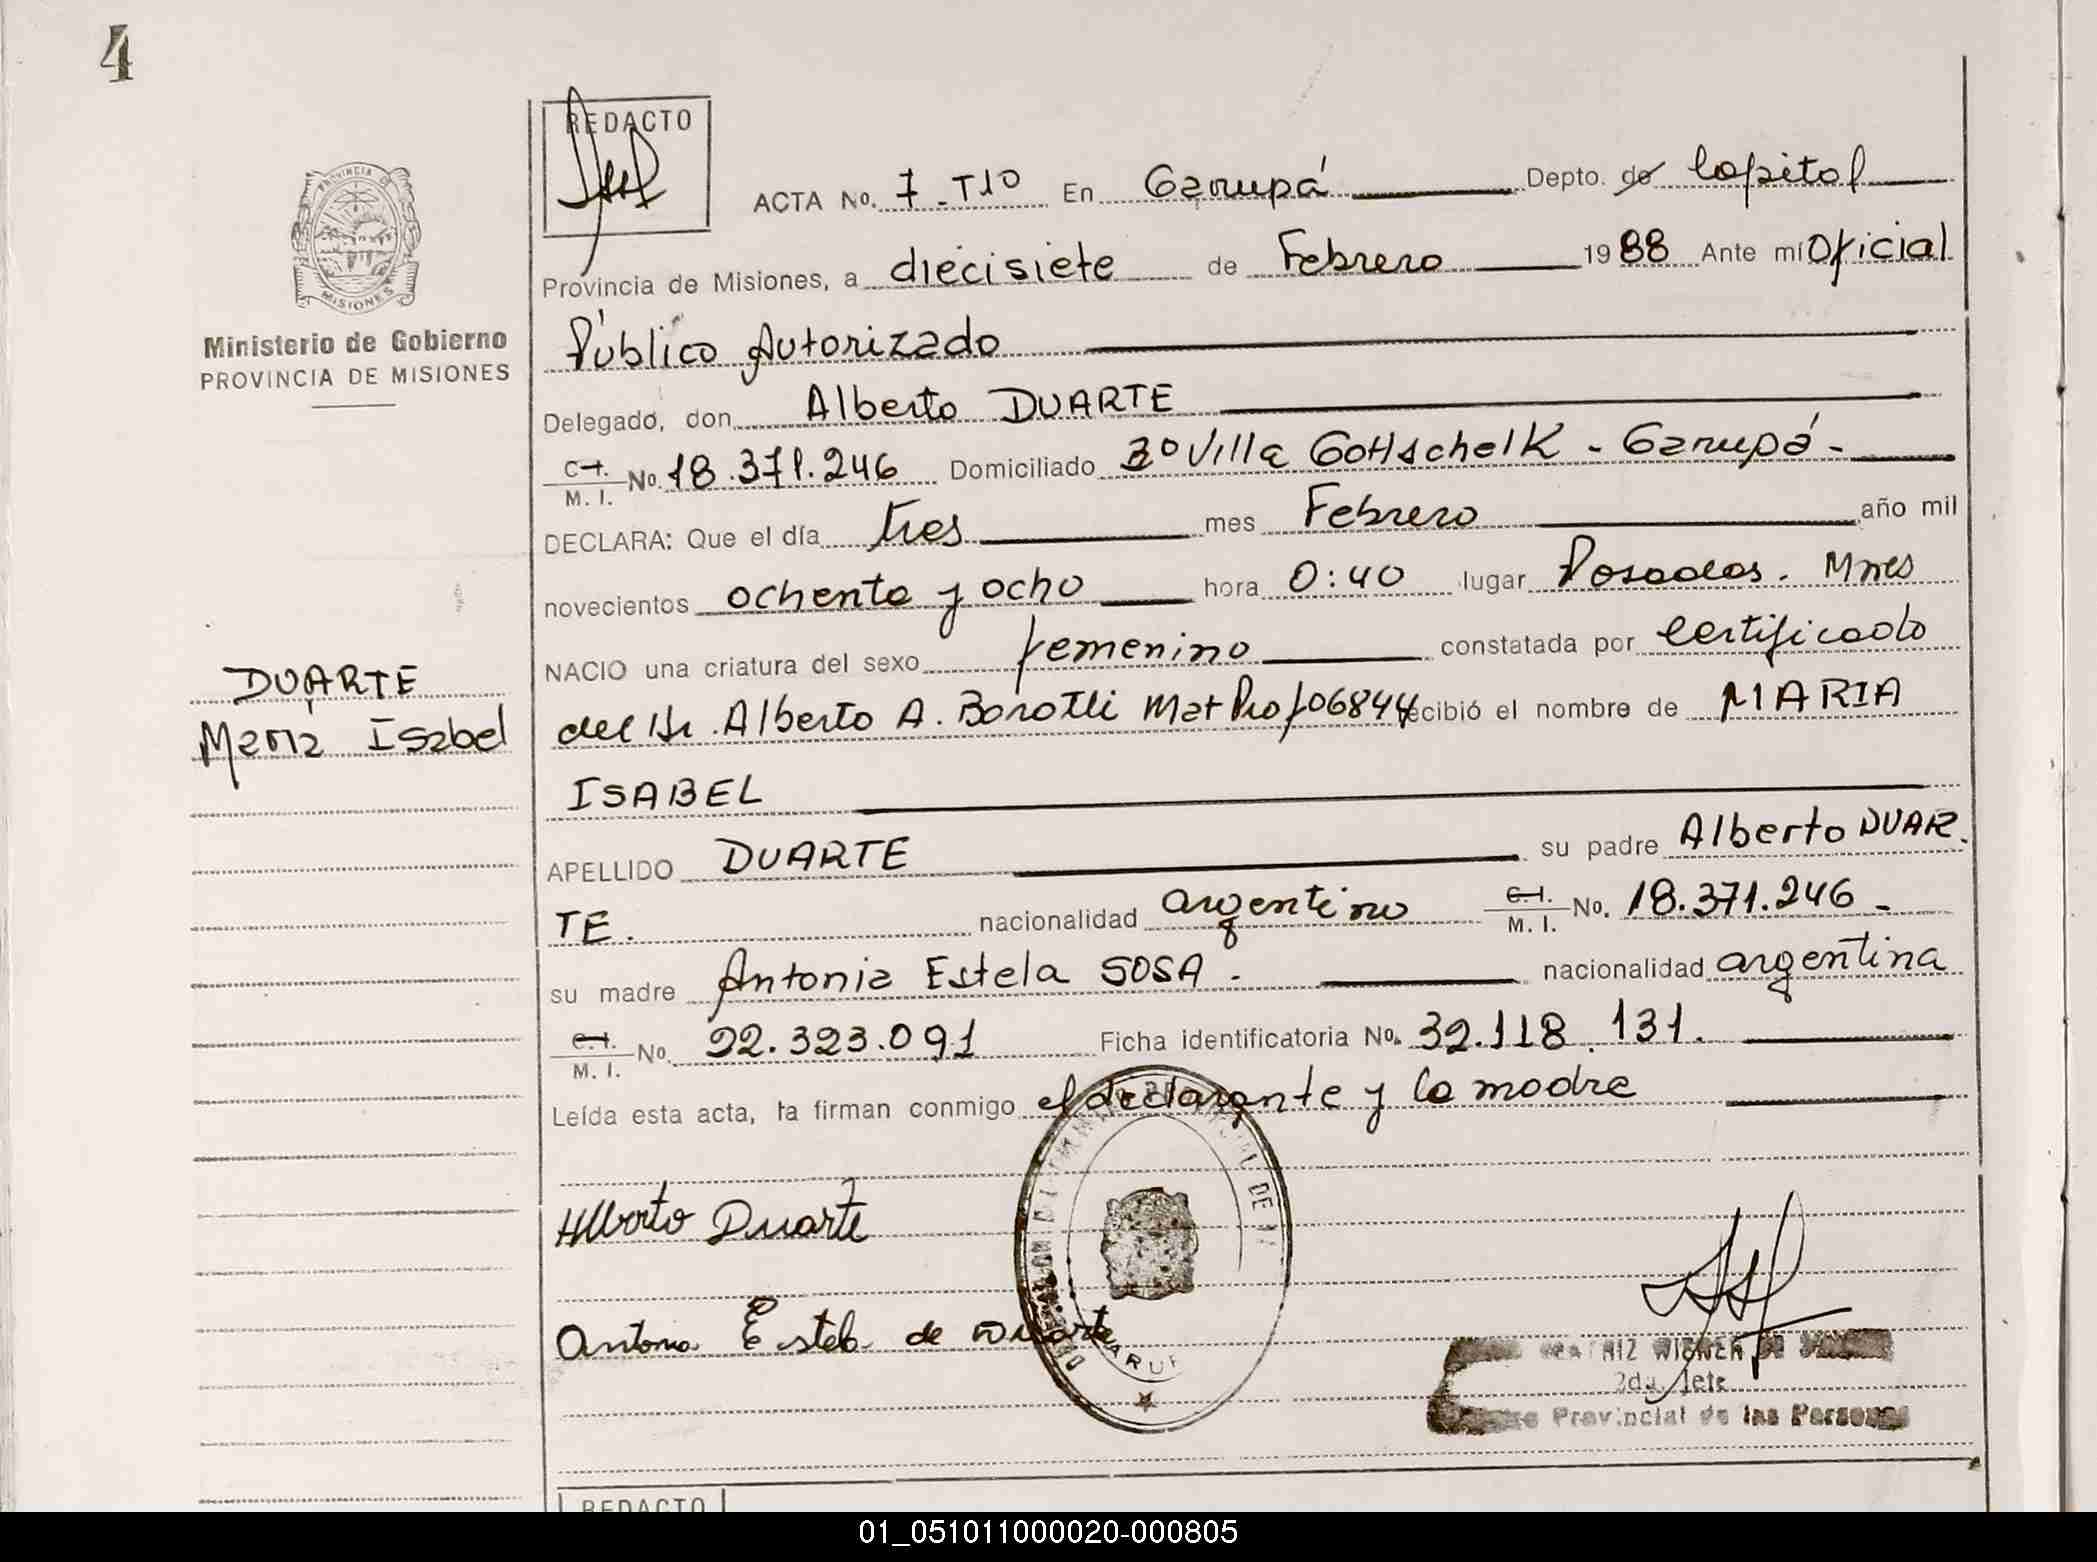 4
REDACTO
ACTA No. 7-T1º En Garupá Depto. de Capital
Provincia de Misiones, a diecisiete de Febrero 1988 Ante mí Oficial
Público Autorizado
Delegado, don Alberto DUARTE
C.I. M. I. No. 18.371.246 Domiciliado Bº Villa Gottschalk - Garupá -
DECLARA: Que el día tres mes Febrero año mil
novecientos ochenta y ocho hora 0:40 lugar Posadas. Mnes
NACIO una criatura del sexo femenino constatada por certificado
del Dr. Alberto A. Borotti Mat Prof 06844 recibió el nombre de MARIA
ISABEL
APELLIDO DUARTE su padre Alberto DUAR
TE. nacionalidad argentino C.I. M. I. No. 18.371.246 -
su madre Antonia Estela SOSA - nacionalidad argentina
C.I. M. I. No. 22.323.091 Ficha identificatoria No. 32.118.131.
Leída esta acta, la firman conmigo el declarante y la madre
Alberto Duarte
Antonia Estela de Duarte
WIGNER DE
2da. Jefe
Provincial de las Personas
PROVINCIA DE
MISIONES
Ministerio de Gobierno
PROVINCIA DE MISIONES
DUARTE
María Isabel
REDACTO
01_051011000020-000805